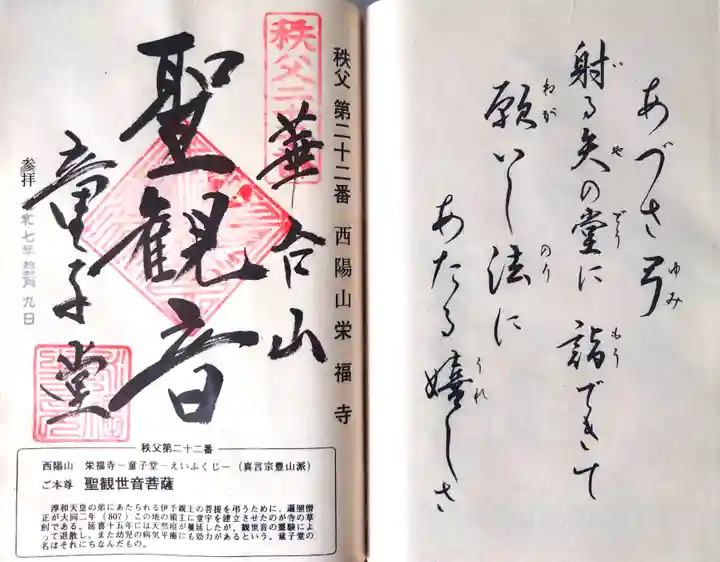 あづさ弓
ゆみ
射る矢の堂に 詣できて
い や どう もう
願いし法に
ねが のり
あたる嬉しさ
うれ
秩父 第二十二番 西陽山栄福寺
秩父二
華台山
聖観音
童子堂
参拝
七年 月九日
秩父第二十二番
西陽山 栄福寺－童子堂－えいふくじ－(真言宗豊山派)
ご本尊 聖観世音菩薩
淳和天皇の弟にあたられる伊予親王の菩提を弔うために、遍照僧
正が大同二年(807)この地の領主に堂宇を建立させたのが寺の草
創である。延喜十五年には天然痘が蔓延したが、観世音の霊験によ
って退散し、また幼児の病気平癒にも効力があるという。童子堂の
名はそれにちなんだもの。